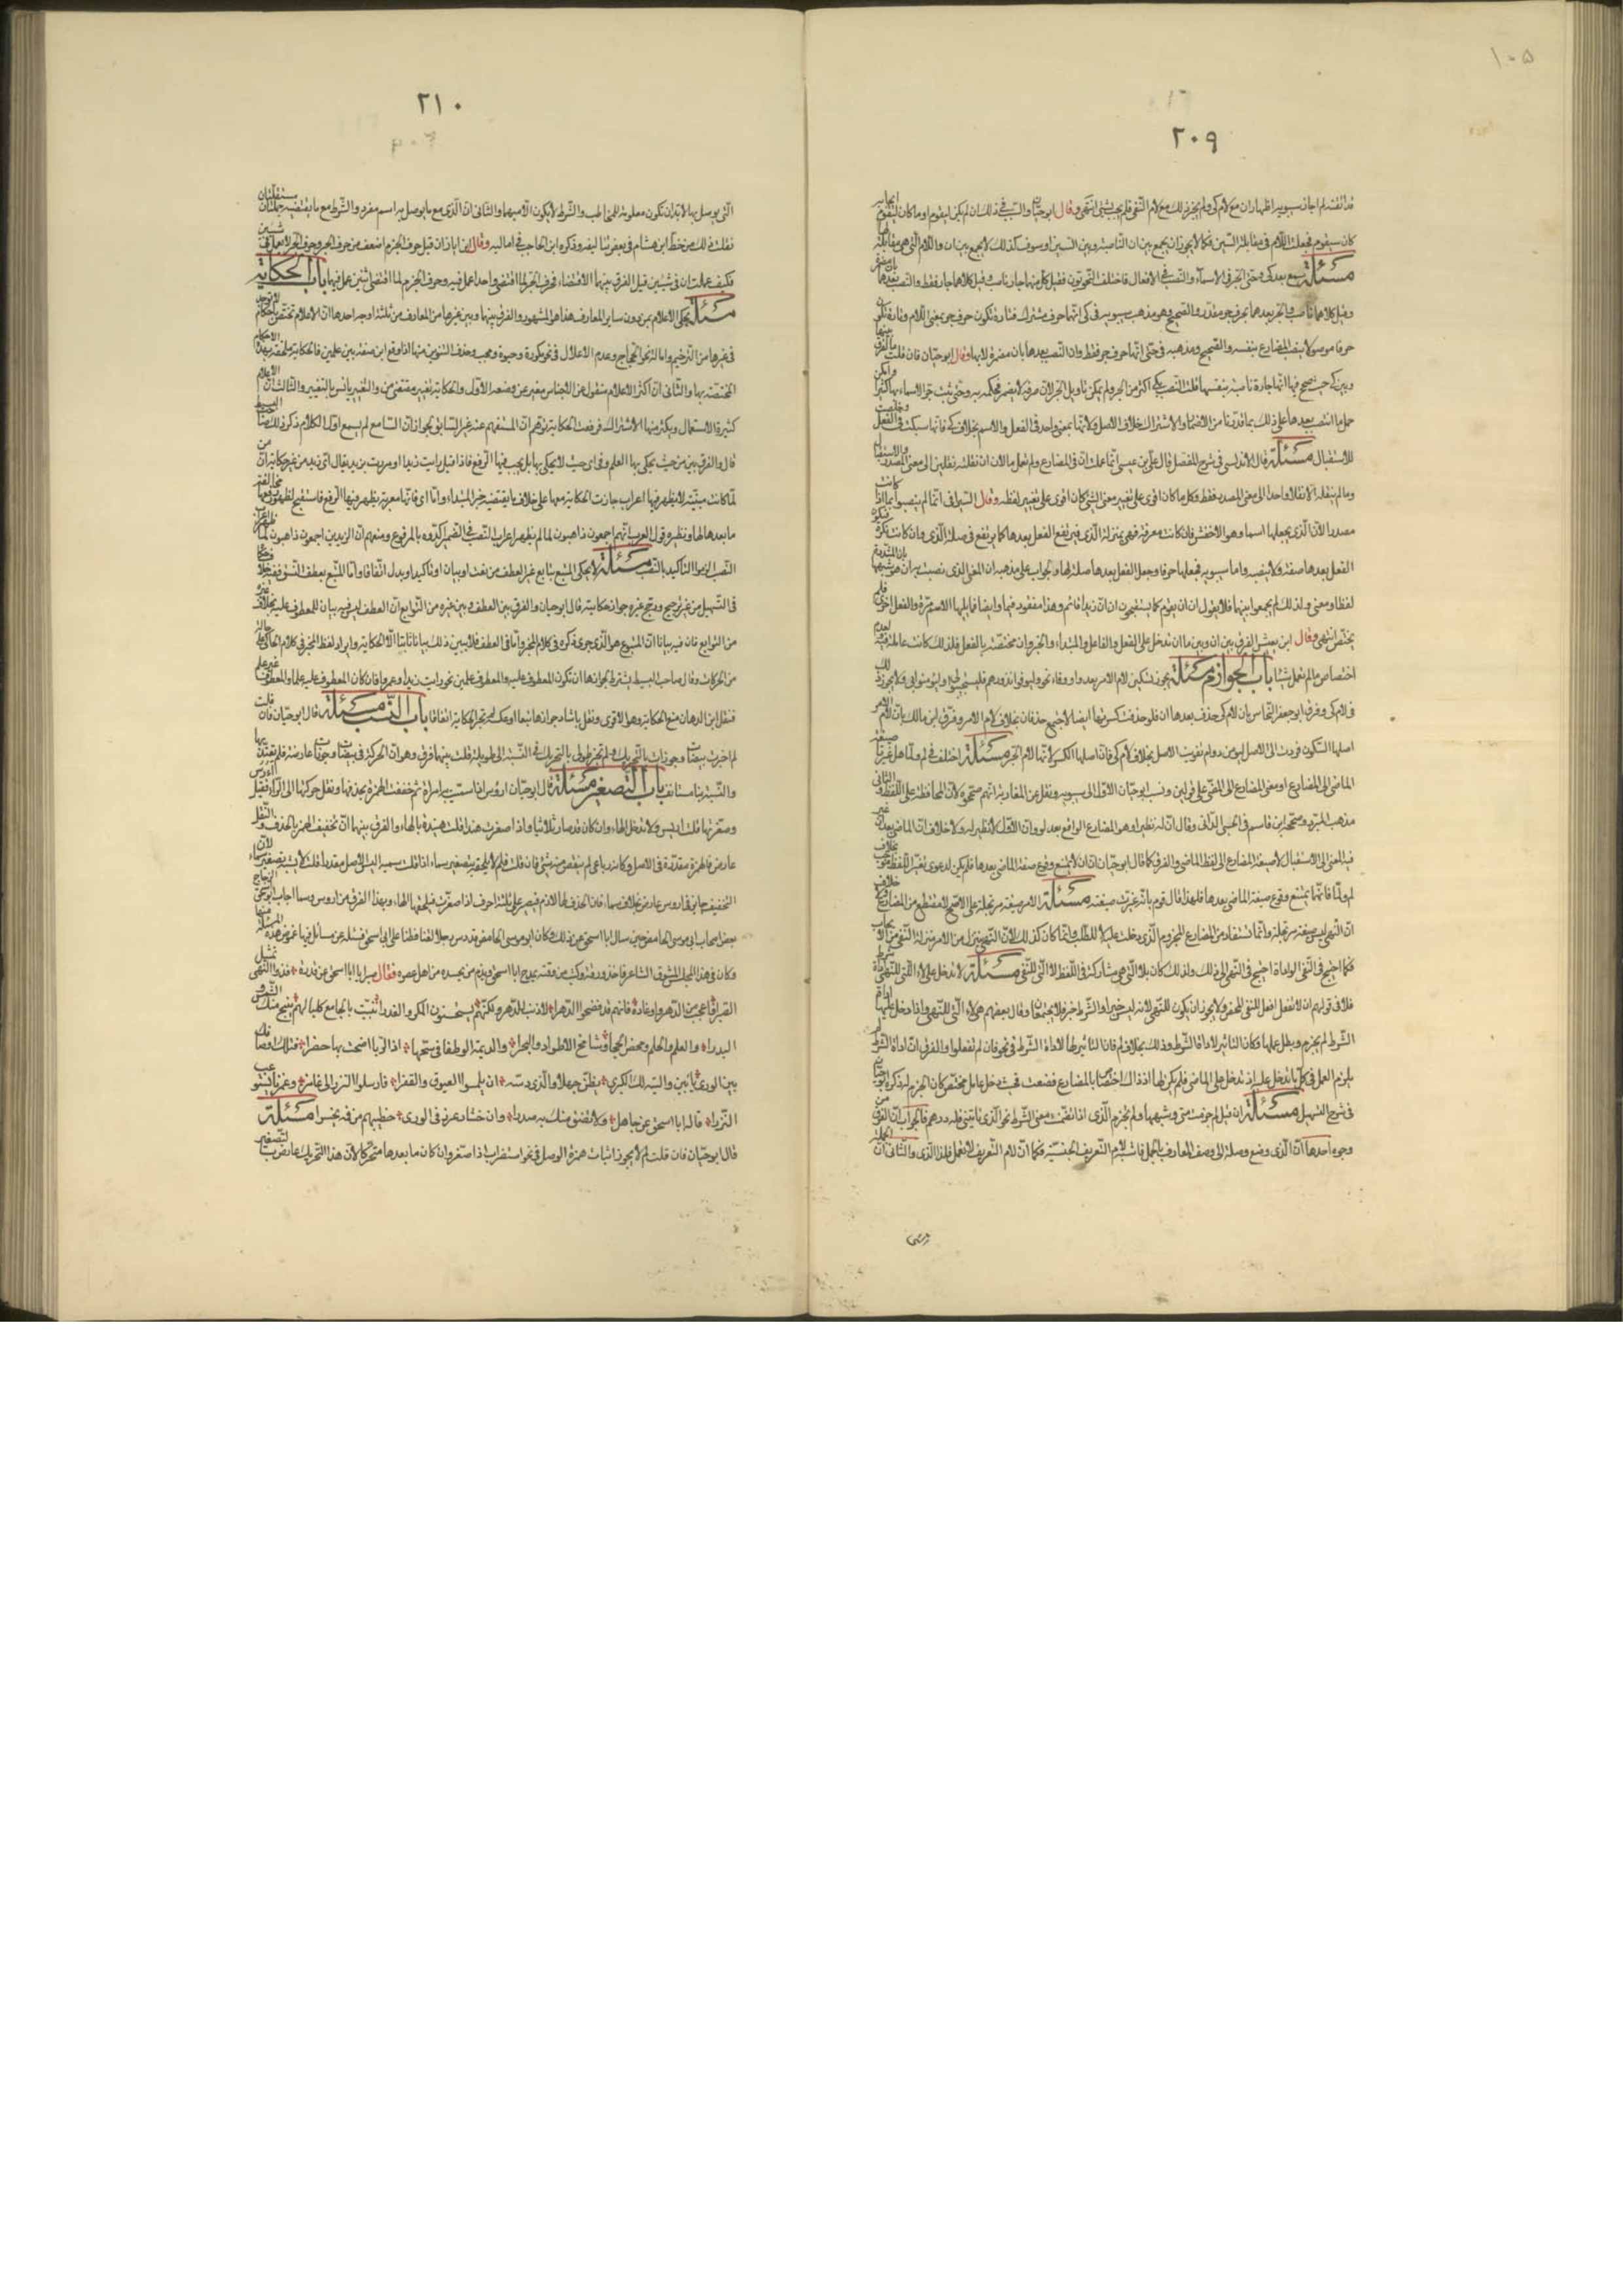 ١٠٥
٢٠٩
قد تقدم لم اجاز سيبويه اظهار ان مع لام كى ولم يجز ذلك مع لام النفى فلم يجب بشئ انتهى وقال ابو حيان والسبب فى ذلك ان لم يكن ليقوم او ما كان ليقوم ايجابه
كان سيقوم فجعلت اللام فى مقابلة السين فكما لا يجوز ان يجمع بين ان الناصبة وبين السين او سوف كذلك لا يجمع بين ان واللام التى هى مقابلة لها
مسئلة سمع بعد كى وحتى الجر فى الاسماء والنصب فى الافعال فاختلف النحويون فقيل كل منهما جار ناصب وقيل كلاهما جار فقط والنصب بعدهما بان مضمرة
وقيل كلاهما ناصب والجر بعدهما بحرف جر مقدر والصحيح وهو مذهب سيبويه فى كى انها حرف مشترك فتارة تكون حرف جر بمعنى اللام وتارة تكون
حرفا موصولا ينصب المضارع بنفسه والصحيح ومذهبه فى حتى انها حرف جر فقط وان النصب بعدها بان مضمرة لا بها وقال ابو حيان فان قلت ما الفرق بينها
وبين كى حيث صحح فيها انها جارة ناصبة بنفسها قلت النصب بكى اكثر من الجر ولم يمكن تاويل الجر لان حرفه لا يضمر فحكم به وحتى ثبت جر الاسماء بها كثيرا وامكن
حمل ما انتصب بعدها على ذلك بما قدرنا من الاضمار والاشتراك خلاف الاصل ولانها بمعنى واحد فى الفعل والاسم بخلاف كى فانها سبكت فى الفعل وخلصت
للاستقبال مسئلة قال الاندلسى فى شرح المفصل قال على بن عيسى انما عملت ان فى المضارع ولم تعمل ما لان ان نقلته نقلين الى معنى المصدر والاستقبال
وما لم ينقله الا نقلا واحدا الى معنى المصدر فقط فكل ما كان اقوى على تغيير معنى الشئ كان اقوى على تغيير لفظه وقال السيرافى انما لم ينصبوا بما اذا كانت
مصدرا لان الذى يجعلها اسما وهو الاخفش فان كانت معرفة فهى بمنزلة الذى فيرتفع الفعل بعدها كما يرتفع فى صلة الذى وان كانت نكرة
الفعل بعدها صفة فلا ينصبه واما سيبويه فجعلها حرفا وجعل الفعل بعدها صلة لها والجواب على مذهبه ان المعنى الذى نصبت به ان هو شبهها بان المشددة
لفظا ومعنى ولذلك لم يجمعوا بينهما فلا يقول ان ان يقوم كما يستقبحون ان ان زيدا قائم وهذا مفقود فيها وايضا فيليها الاسم مرة والفعل اخرى فلم
يختص انتهى وقال ابن يعيش الفرق بين ان وبين ما ان ما تدخل على الفعل والفاعل والمبتداء والخبر وان مختصة بالفعل فلذلك كانت عاملة فيه ولعدم
اختصاص ما لم تعمل شيئا باب الجوازم مسئلة يجوز تسكين لام الامر بعد واو وفاء نحو وليوفوا نذورهم فليستجيبوا لى وليومنوا بى ولا يجوز ذلك
فى لام كى وفرق ابو جعفر النحاس بان لام كى حذف بعدها ان فلو حذفت كسرتها ايضا لاجتمع حذفان بخلاف لام الامر وفرق ابن مالك بان لام الامر
اصلها السكون فردت الى الاصل ليومن دوام تفويت الاصل بخلاف لام كى فان اصلها الكسر لانها لام الجر مسئلة اختلف فى لم ولما هل غيرتا صيغة
الماضى الى المضارع او معنى المضارع الى المضى على قولين ونسب ابو حيان الاول الى سيبويه ونقل عن المغاربة انهم صححوه لان المحافظة على اللفظ والثانى
مذهب المبرد وصححه ابن قاسم فى الجنى الدانى وقال ان له نظيرا وهو المضارع الواقع بعد لو وان الاول لا نظير له ولا خلاف ان الماضى بعد ان غير
فيه المعنى الى الاستقبال لا صيغة المضارع الى لفظ الماضى والفرق كما قال ابو حيان ان ان لا يمتنع وقوع صيغة الماضى بعدها فلم يكن لدعوى تغير اللفظ موجب بخلاف
لم ولما فانهما يمتنع وقوع صيغة الماضى بعدها فلهذا قال قوم بانه غيرت صيغته مسئلة الامر صيغة مرتجلة على الاصح لا مقتطع من المضارع ولا خلاف
ان النهى ليس صيغة مرتجلة وانما يستفاد من المضارع المجزوم الذى دخلت عليه لا للطلب وانما كان كذلك لان النهى يتنزل من الامر منزلة النفى من الايجاب
فكما احتيج فى النفى الى اداة احتيج فى النهى الى ذلك ولذلك كان بلا التى هى مشاركة فى اللفظ لا التى للنفى مسئلة لا تدخل على لا التى للنهى اداة شرط
فلا فى قولهم ان لا تفعل افعل للنفى المحض ولا يجوز ان يكون للنهى لانه ليس خبرا والشرط خبر فلا يجتمعان وقال بعضهم هى لاء التى للنهى واذا دخل عليها اداة
الشرط لم يجزم وبطل عملها وكان التاثير لاداة الشرط وذلك بخلاف لم فان التاثير لها لا لاداة الشرط فى نحو فان لم تفعلوا والفرق ان اداة الشرط لم
يلزم العمل فى كل ما تدخل عليه اذ تدخل على الماضى فلم يكن لها اذ ذاك اختصاص بالمضارع فضعفت فحيث دخل عامل مختص كان الجزم له ذكره ابو حيان
فى شرح التسهيل مسئلة ان قيل لم جزمت متى وشبهها ولم يجزم الذى اذا تضمنت معنى الشرط نحو الذى ياتينى فله درهم فالجواب ان الفرق من
وجوه احدها ان الذى وضع وصلة الى وصف المعارف بالجمل فاشبه لام التعريف الجنسية فكما ان لام التعريف لا تعمل فكذا الذى والثانى ان الجملة
٢١٠
التى يوصل بها لا بد ان تكون معلومة للمخاطب والشرط لا يكون الا مبهما والثالث ان الذى مع ما يوصل به اسم مفرد والشرط مع ما يقتضيه جملتان مستقلتان
نقلت ذلك من خط ابن هشام فى بعض تعاليقه وذكره ابن الحاجب فى اماليه وقال ابن اياز ان قيل حرف الجزم اضعف من حرف الجر وحرف الجر لا يعمل فى شيئين
فكيف عملت ان فى شيئين قيل الفرق بينهما الاقتضاء فحرف الجر لما اقتضى واحدا عمل فيه وحرف الجزم لما اقتضى اثنين عمل فيهما باب الحكاية
مسئلة يحكى الاعلام بمن دون ساير المعارف هذا هو المشهور والفرق بينها وبين غيرها من المعارف من ثلثة اوجه احدها ان الاعلام تختص باحكام لا توجد
فى غيرها من الترخيم وامالة نحو الحجاج وعدم الاعلال فى نحو مكوزة وحيوة ومحبب وحذف التنوين منها اذا وقع ابن صفة بين علمين فالحكاية ملحقة بهذه الاحكام
المختصة بها والثانى ان اكثر الاعلام منقول عن الاجناس مغير عن وضعه الاول والحكاية تغيير مقتضى من والتغيير يانس بالتغيير والثالث ان الاعلام
كثيرة الاستعمال ويكثر فيها الاشتراك فرفعت الحكاية توهم ان المستفهم عنه غير السابق لجواز ان السامع لم يسمع اول الكلام ذكر ذلك صاحب البسيط
قال والفرق بين من حيث يحكى بها العلم وفى اى حيث لا يحكى بها بل يجب فيها الرفع فاذا قيل رايت زيدا او مررت بزيد يقال اى زيد من غير حكاية ان من
لما كانت مبنية لا يظهر فيها اعراب جازت الحكاية معها على خلاف ما يقتضيه خبر المبتداء واما اى فانها معربة يظهر فيها الرفع فاستقبح لظهور رفعها مخالفة
ما بعدها لها ونظيره قول العرب انهم اجمعون ذاهبون لما لم يظهر اعراب النصب فى الضمير اكدوه بالمرفوع ومنعهم ان الزيدين اجمعون ذاهبون لما ظهر اعراب
النصب الزموا التاكيد بالنصب مسئلة لا يحكى المتبع بتابع غير العطف من نعت او بيان او تاكيد او بدل اتفاقا واما المتبع بعطف النسق ففيه خلاف
فى التسهيل من غير ترجيح ورجح غيره جواز حكايته قال ابو حيان والفرق بين العطف وبين غيره من التوابع ان العطف ليس فيه بيان للمعطوف عليه بخلاف غيره
من التوابع فان فيه بيانا ان المتبوع هو الذى جرى ذكره فى كلام المخبر واما فى العطف فلا يبين ذلك بيانا ثابتا الا الحكاية وايراد لفظ المخبر فى كلام الحاكى على حاله
من الحركات وقال صاحب البسيط يشترط لجوازها ان تكون المعطوف عليه والمعطوف علمين نحو رايت زيدا وعمروا فان كان المعطوف عليه علما والمعطوف غير علم
فنقل ابن الدهان منع الحكاية وهو الاقوى ونقل بابشاذ جوازها تبعا او عكسه لم تجز الحكاية اتفاقا باب النسب مسئلة قال ابو حيان فان قلت
لم اجزت بيضات وجوزات بالتحريك ولم تجز طولى بالتحريك فى النسبة الى طويلة قلت بينهما فرق وهو ان الحركة فى بيضات وجوزات عارضة فلم يعتد بها
والنسبة بناء مستانف باب التصغير مسئلة قال ابو حيان ارؤس اذا سميت به امراة ثم خففت الهمزة بحذفها ونقل حركتها الى الراء فقيل ارس
وصغرتها قلت اريس ولا تدخل الهاء وان كان قد صار ثلاثيا واذا صغرت هندا قلت هنيدة بالهاء والفرق بينهما ان تخفيف الهمز بالحذف والنقل
عارض فالهمزة مقدرة فى الاصل وكانه رباعى لم ينقص منه شئ فان قلت فلم لا يلحقه بتصغير سماء اذا قلت سمية اليس الاصل مقدرا قلت لا يشبه تصغير سماء لان
التخفيف جائز فى ارؤس عارض بخلاف سماء فان الحذف لها لازم فيصير على ثلثة احرف اذا صغرت فيلحقها الهاء وبهذا الفرق بين ارؤس وسماء اجاب ابو اسحق الزجاج
بعض اصحاب ابى موسى الحامض حين سال ابا اسحق عن ذلك وكان ابو موسى الحامض قد دس رجلا لقنا فطنا على ابى اسحق فسئله عن مسائل فيها غموض هذه المسئلة منها
وكان فى هذا المجلس المشوق الشاعر فاخذ ورقة وكتب من وقته يمدح ابا اسحق ويذم من يحسده من اهل عصره فقال صبرا ابا اسحق عن قدرة فذو النهى يمتثل
الصبرا واعجب من الدهر واوغاده فانهم قد فضحوا الدهرا لا ذنب للدهر ولكنهم يستحسنون المكر والغدرا نبئت بالجامع كلبا لهم ينبح منك الشمس و
البدرا والعلم والحلم ومحض الحجى وشامخ الاطواد والبحرا والديمة الوطفا فى سحها اذا الربا اضحت بها خضرا فتلك اوصافك
بين الورى يابين والتيه لك الكبرى يظن جهلا والذى دسه ان يلمسوا العيوق والغفرا فارسلوا النزر الى غامر وغمرنا يستوعب
النزرا فاله ابا اسحق عن جاهل ولا تضق منك به صدرا وان خشار عرر فى الورى خطيبهم من فمه يخرا مسئلة
قال ابو حيان فان قلت لم لا يجوز اثبات همزة الوصل فى نحو استضراب اذا صغر وان كان ما بعدها متحركا لان هذا التحريك عارض بالتصغير